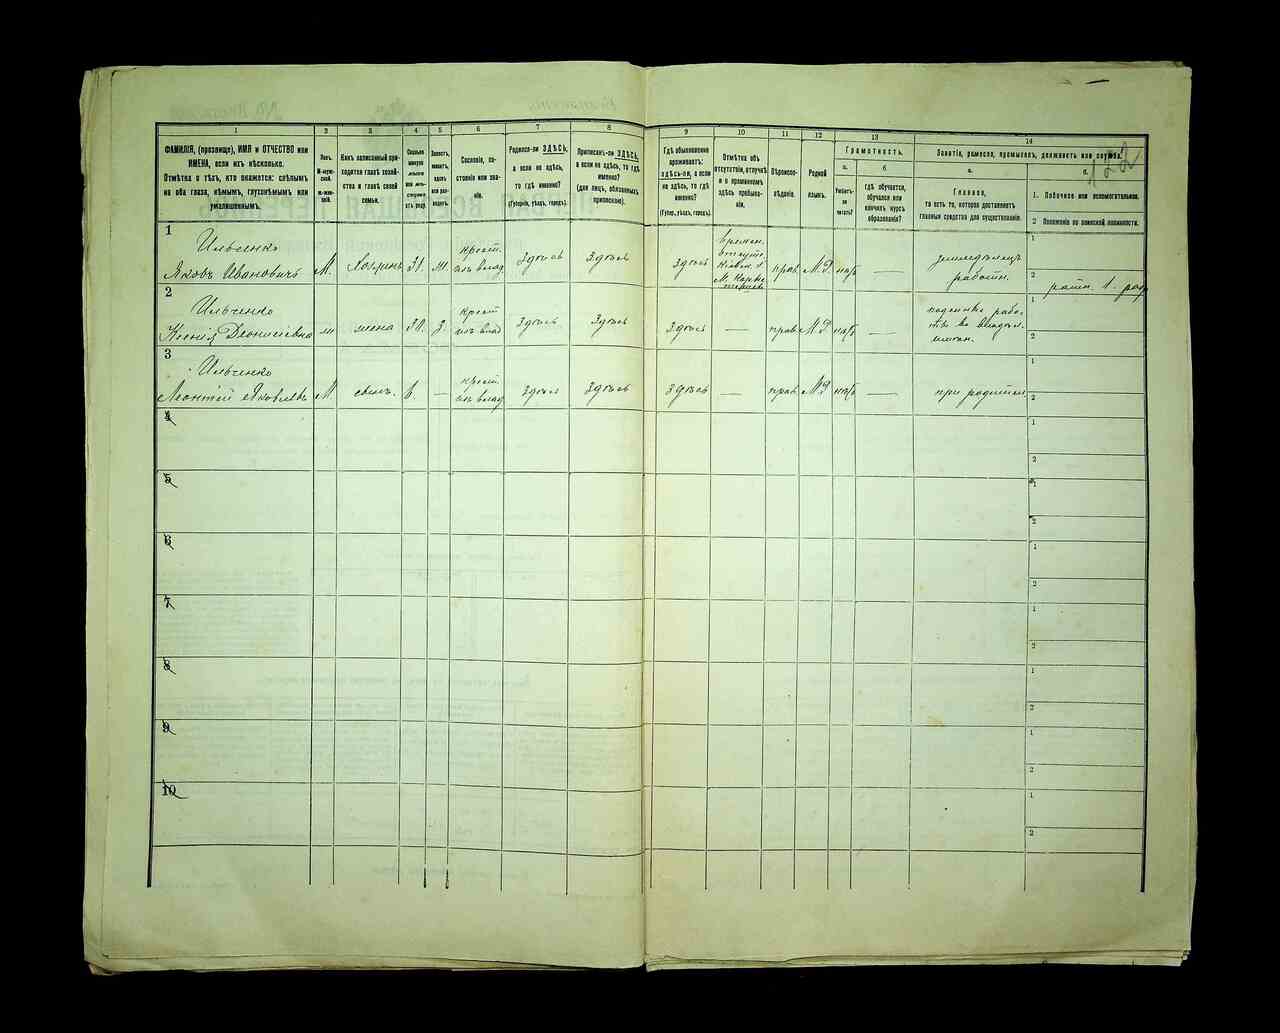 1
2
3
4
5
6
7
8
9
10
11
12
13
14
ФАМИЛІЯ, (прозвище), ИМЯ и ОТЧЕСТВО или
ИМЕНА, если ихъ нѣсколько.
Отмѣтка о тѣхъ, кто окажется: слѣпымъ
на оба глаза, нѣмымъ, глухонѣмымъ или
умалишеннымъ.
Полъ.
М-муж-
ской.
Ж-жен-
скій.
Какъ записанный при-
ходится главѣ хозяй-
ства и главѣ своей
семьи.
Сколько
минуло
лѣтъ
или мѣ-
сяцевъ
отъ роду.
Холостъ,
женатъ,
вдовъ
или раз-
веденъ.
Сословіе, со-
стояніе или зва-
ніе.
Родился-ли ЗДѢСЬ,
а если не здѣсь,
то гдѣ именно?
(Губернія, уѣздъ, городъ).
Приписанъ-ли ЗДѢСЬ,
а если не здѣсь, то гдѣ
именно?
(для лицъ, обязанныхъ
припискою).
Гдѣ обыкновенно
проживаетъ:
ЗДѢСЬ-ли, а если
не здѣсь, то гдѣ
именно?
(Губер., уѣздъ, городъ).
Отмѣтка объ
отсутствіи, отлучкѣ
и о временномъ
здѣсь пребыва-
ніи.
Вѣроиспо-
вѣданіе.
Родной
языкъ.
Грамотность.
а.
Умѣетъ-
ли
читать?
б.
гдѣ обучается,
обучался или
кончилъ курсъ
образованія?
Занятіе, ремесло, промыселъ, должность или служба.
Главное,
то есть то, которое доставляетъ
главныя средства для существованія.
а.
б.
1. Побочное или вспомогательное.
2 Положеніе по воинской повинности.
1
Ильченко
Яковъ Ивановичъ М. Хозяинъ 30. ж. крест. изъ влад. Здѣсь Здѣсь Здѣсь
времен.
отсутс.
прав. М.Р. на/б —
работн.
1
2 ратн. 1. раз
2
Ильченко
Ксенія Діонисіевна ж жена 30. З. крест изъ влад Здѣсь Здѣсь Здѣсь — прав М.Р. на/б —
1
2
3
Ильченко
Леонтій Яковлевъ М. сынъ. 6. — крест. изъ влад Здѣсь Здѣсь Здѣсь — прав. М.Р. на/б — при родител.
1
2
4
1
2
5
1
2
6
1
2
7
1
2
8
1
2
9
1
2
10
1
2